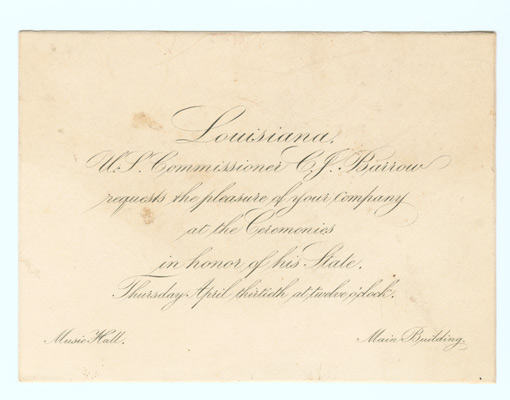 Louisiana.
U.S. Commissioner C.J. Barrow
requests the pleasure of your company
at the Ceremonies
in honor of his State.
Thursday April thirtieth at twelve o'clock.
Music Hall. Main Building.